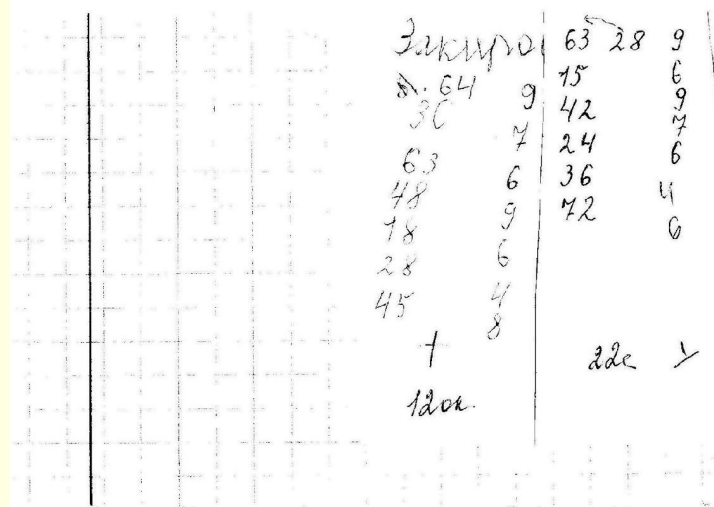 Закиро
64 9
30 7
63 6
48 9
18 6
28 4
45 8
12 ок.
63 28 9
15 6
42 9
24 7
36 6
72 4
6
22с